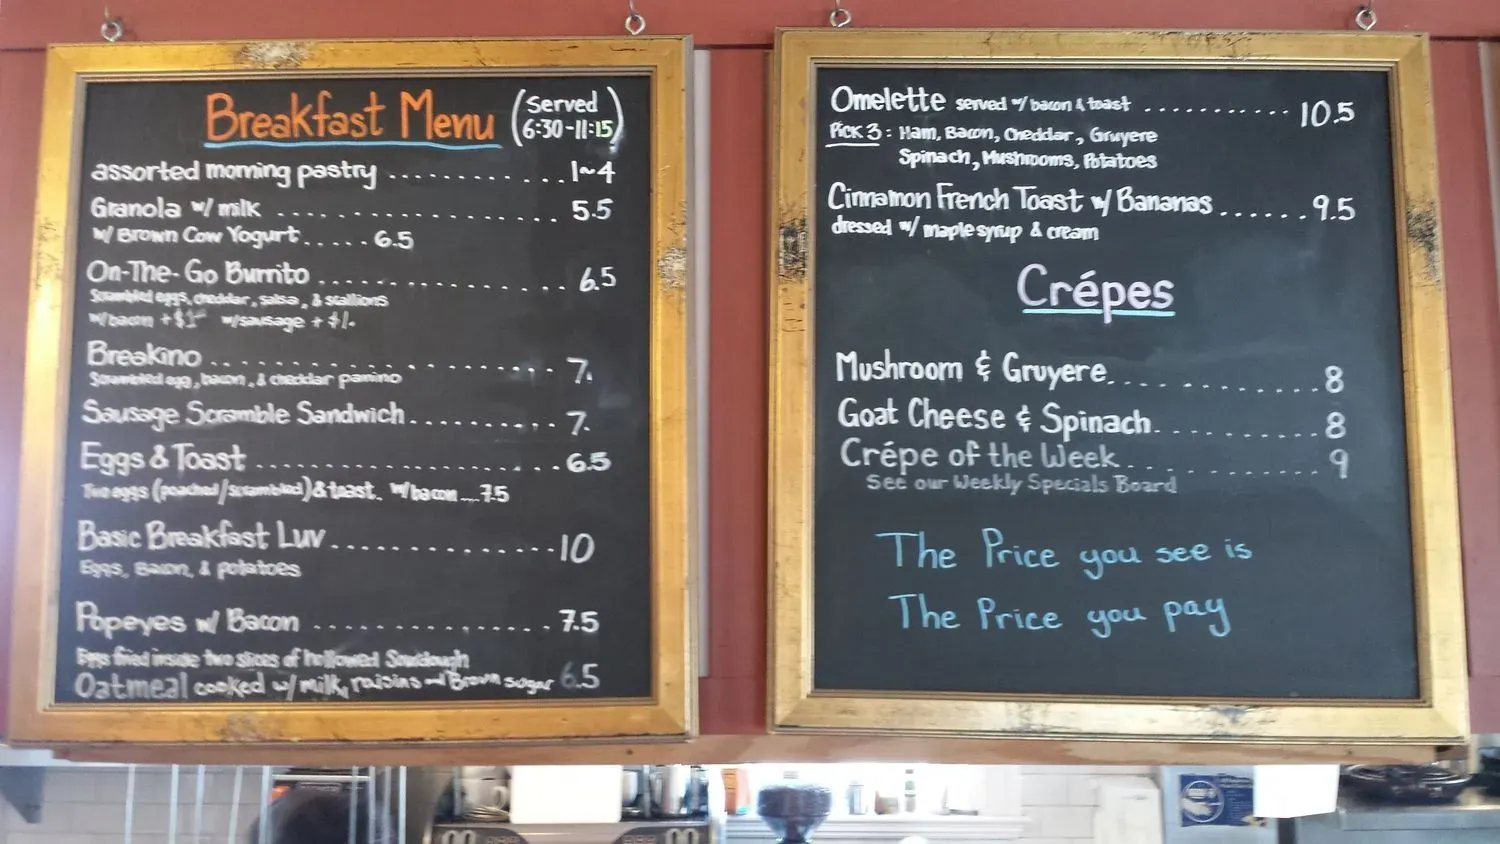 Breakfast Menu (Served 6:30-11:15)
assorted morning pastry .......... 1~4
Granola w/ milk .......... 5.5
w/ Brown Cow Yogurt..... 6.5
On-The-Go Burrito .......... 6.5
Scrambled eggs, cheddar, salsa, & scallions
w/bacon +$1 w/sausage + $1.
Breakino .......... 7.
Scrambled egg, bacon, & cheddar panino
Sausage Scramble Sandwich.......... 7.
Eggs & Toast .......... 6.5
Two eggs (poached/scrambled) & toast. w/bacon .... 7.5
Basic Breakfast Luv.......... 10
Eggs, Bacon, & potatoes
Popeyes w/ Bacon .......... 7.5
Eggs fried inside two slices of hollowed Sourdough
Oatmeal cooked w/ milk, raisins and Brown sugar 6.5
Omelette served w/ bacon & toast .......... 10.5
Pick 3: Ham, Bacon, Cheddar, Gruyere
Spinach, Mushrooms, Potatoes
Cinnamon French Toast w/ Bananas ....... 9.5
dressed w/ maple syrup & cream
Crépes
Mushroom & Gruyere.......... 8
Goat Cheese & Spinach.......... 8
Crépe of the Week.......... 9
See our Weekly Specials Board
The Price you see is
The Price you pay